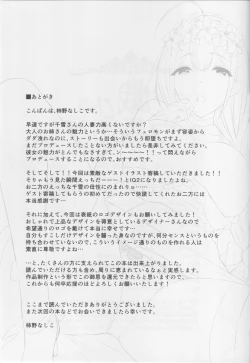 ■あとがき
こんばんは、柿野なしこです。
早速ですが千雪さんの人妻力高くないですか?
大人のお姉さんの魅力というか…そういうフェロモンがまず容姿から
ダダ洩れなのに、ストーリーも出会いからもう即堕ちですよ。
まだプロデュースしたことない方がいましたら是非してみてください。
彼女の魅力がもうとんでもなくて…ンンンーーー!!って悶えながら
プロデュースすることになるので…!
そしてそして!!今回は素敵なゲストイラスト寄稿して頂きました!
そりゃもう見た瞬間えっちだーーー!とIQ2になりました。
お二方のえっちな千雪の母性にのまれりゅ…
ゲスト寄稿していただくのが初めてだったので快諾してくれたお二方には
感謝しきれないです…!ありがとうございます!
それに加えて、今回は表紙のロゴデザインもお願いしました!
おしゃれで上品なデザインを得意としているデザイナーさんなので
希望通りのロゴを頂けて本当に嬉しかったです。
自分もすこしだけデザインを齧った身なのですが、何分センスというものを
持ち合わせていないので、こういうイメージ通りのものを作れる人は
素直に尊敬ですね…
…と、たくさんの方に支えられてこの本は出来上がりました。
読んでいただける方も含め、周りに恵まれているなぁと実感します。
作品制作という形でこのご恩を返していければと思っていますので
これからも何卒応援のほどよろしくお願いいたします!
ここまで読んでいただきありがとうございました。
また次回の本などでお会いできましたら幸いです。
柿野なしこ